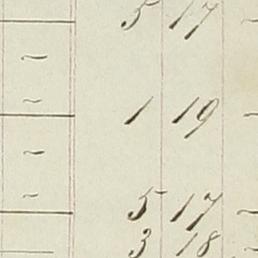 5 17
~
~
1 19 —
~
~
5 17 ~
3 18 ~